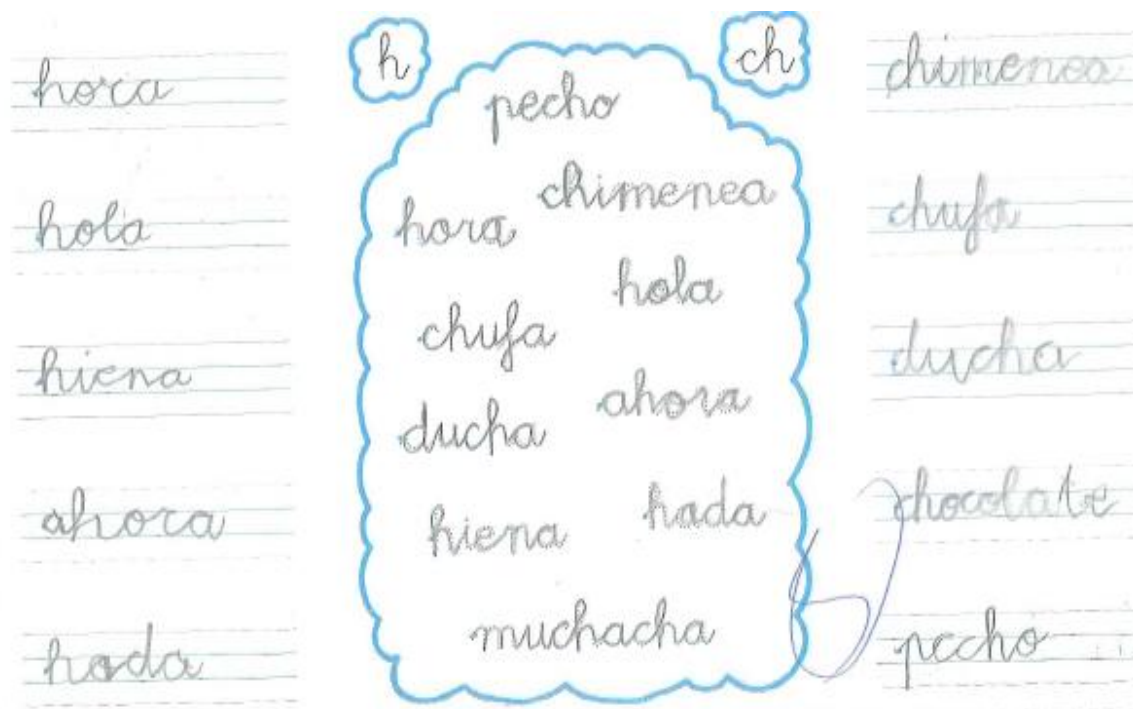 hora
hola
hiena
ahora
hada
h
ch
pecho
chimenea
hora
hola
chufa
ahora
ducha
hada
hiena
muchacha
chimenea
chufa
ducha
chocolate
pecho